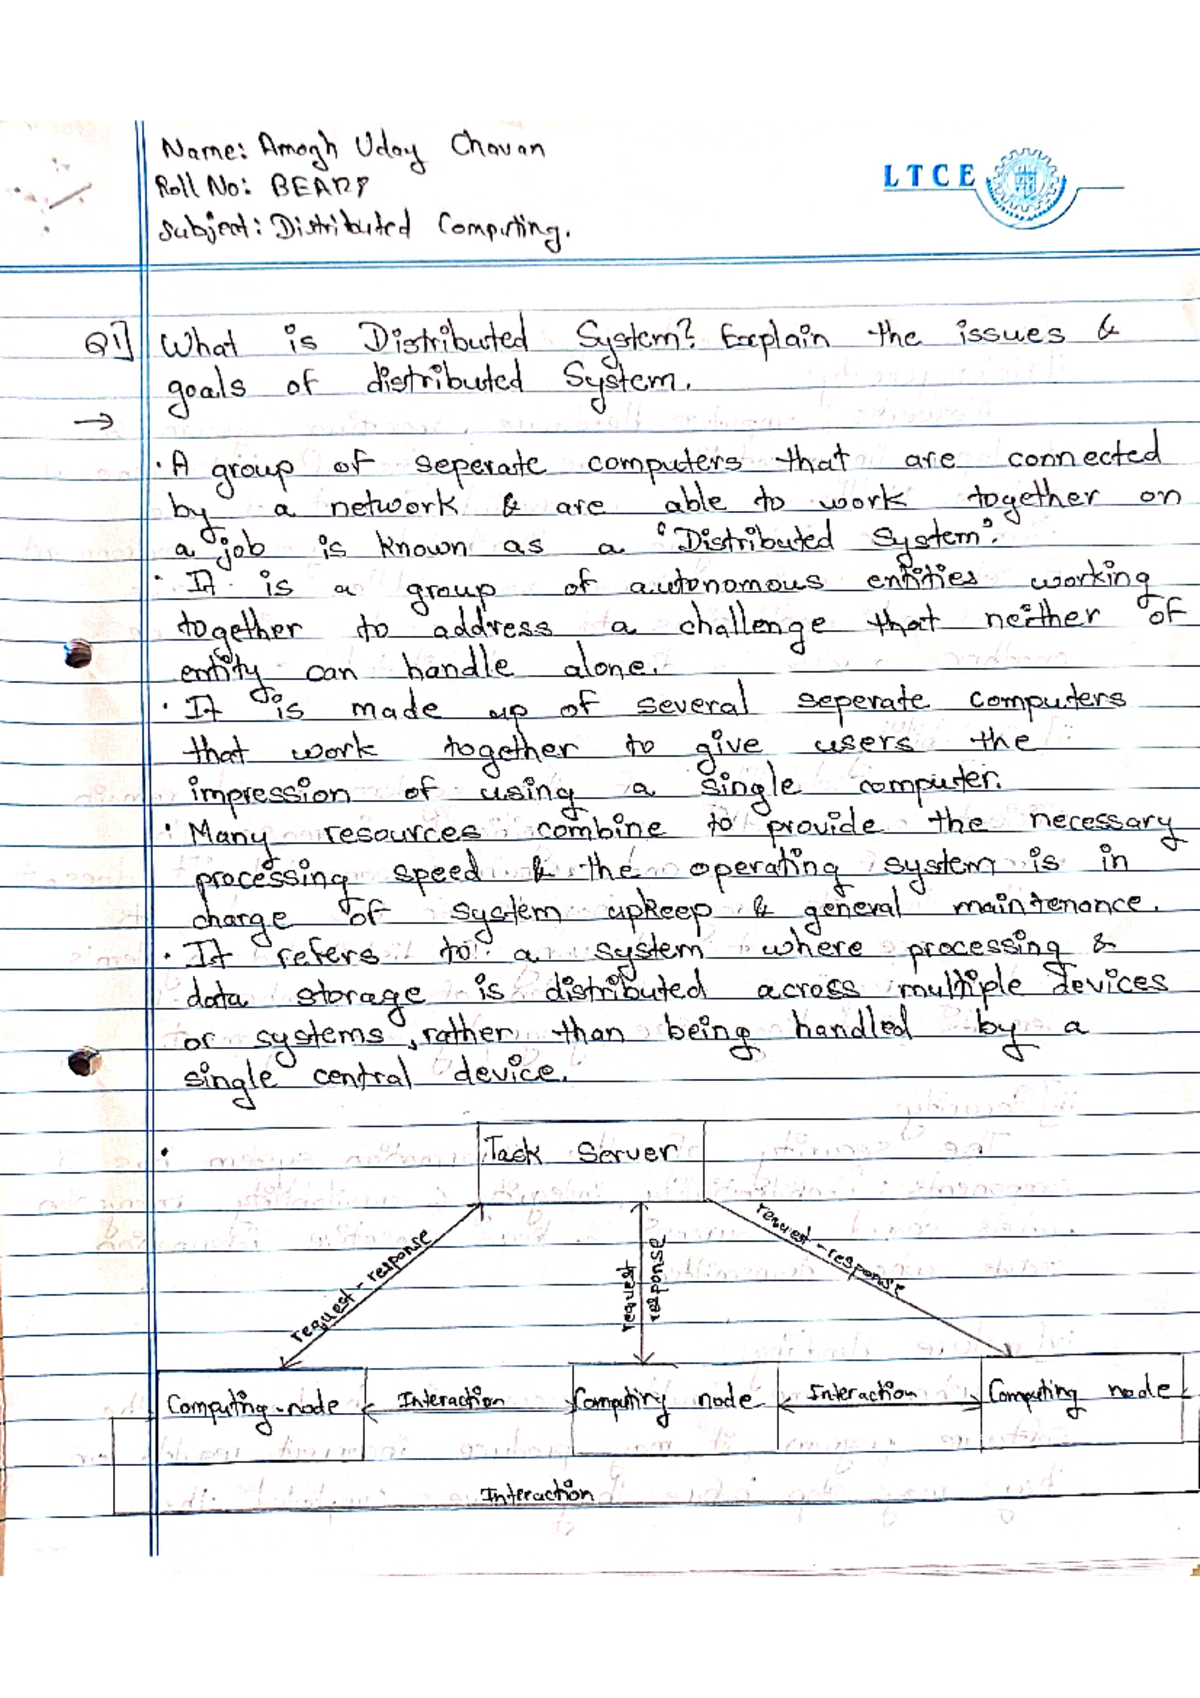 Name: Amogh Uday Chavan
Roll No:
LTCE
Subject: Distributed Computing.
Q1] What is Distributed System? Explain the issues &
goals of distributed System.
→
· A group of seperate computers that are connected
by a network & are able to work together on
a job is known as a 'Distributed System'.
· It is a group of autonomous entities working
together to address a challenge that neither of
entity can handle alone.
· It is made up of several seperate computers
that work together to give users the
impression of using a single computer.
· Many resources combine to provide the necessary
processing speed & the operating system is in
charge of system upkeep & general maintenance.
· It refers to a system where processing &
data storage is distributed across multiple devices
or systems, rather than being handled by a
single central device.
· Task Server
request - response
request response
request - response
Computing node Interaction Computing node Interaction Computing node
Interaction